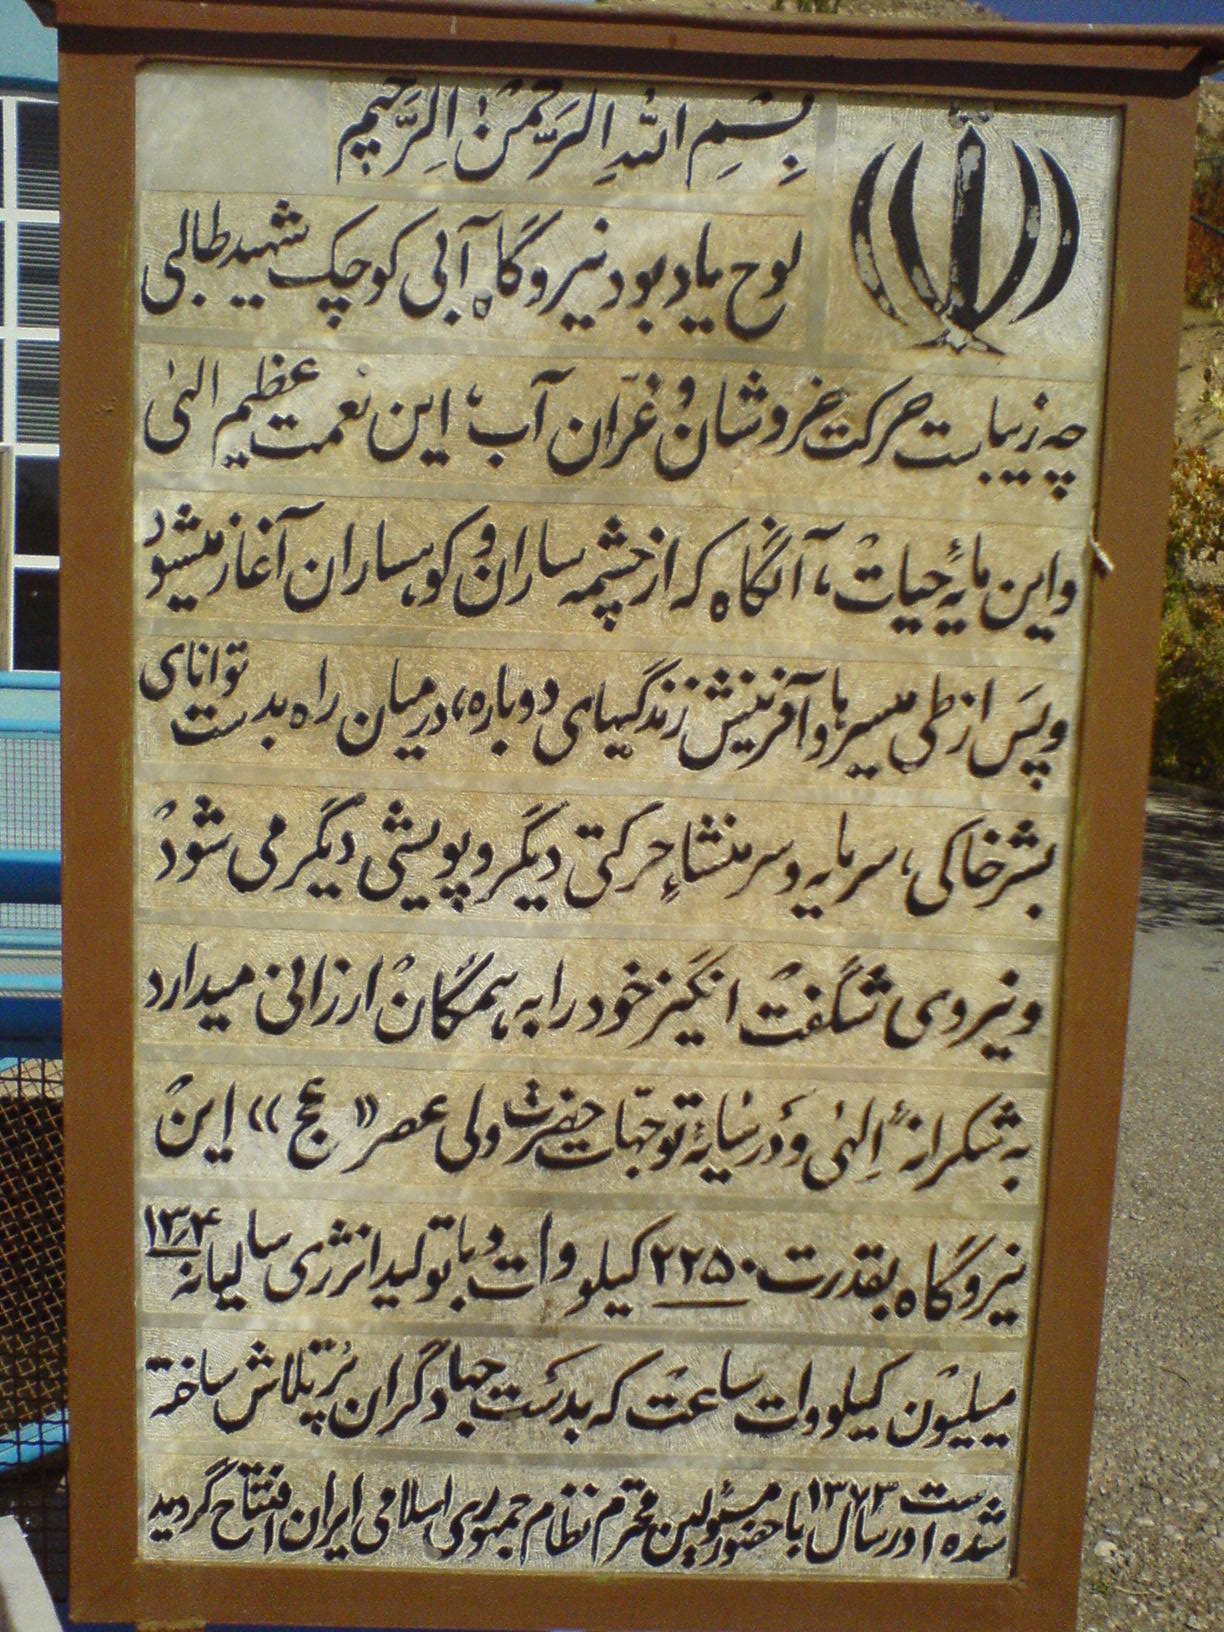 بِسْمِ اللهِ الرَّحْمٰنِ الرَّحِیمِ
لوح یادبود نیروگاه آبی کوچک شهید طالبی
چه زیباست حرکت خروشان و غرّان آب، این نعمت عظیم الهی
و این مایۀ حیات، آنگاه که از چشمه ساران و کوهساران آغاز میشود
و پس از طی مسیرها و آفرینش زندگیهای دوباره، در میان راه بدست توانای
بشر خاکی، سرمایه و سر منشاءِ حرکتی دیگر و پویشی دیگر می شود
و نیروی شگفت انگیز خود را به همگان ارزانی میدارد
به شکرانۀ اِلهی و در سایۀ توجهات حضرت ولی عصر «عج» این
نیروگاه بقدرت ۲۲۵۰ کیلو وات و با تولید انرژی سالیانه ۱۳٫۴
میلیون کیلو وات ساعت که بدست جهادگران پُر تلاش ساخته
شده است در سال ۱۳۷۳ با حضور مسئولین محترم نظام جمهوری اسلامی ایران افتتاح گردید